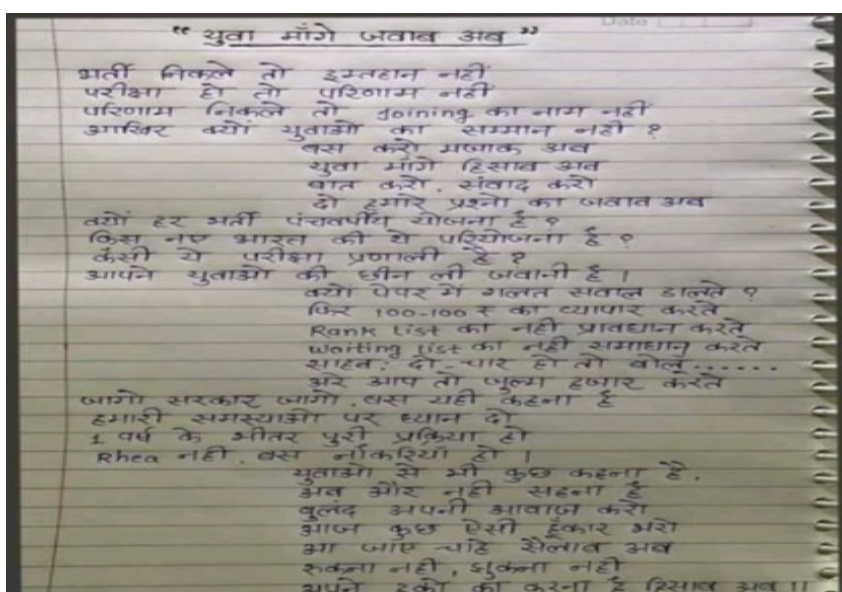 Date
“ युवा माँगे जवाब अब ”
भर्ती निकले तो इम्तहान नहीं
परीक्षा हो तो परिणाम नहीं
परिणाम निकले तो Joining का नाम नहीं
आखिर क्यों युवाओ का सम्मान नही ?
बस करो मजाक अब
युवा माँगे हिसाब अब
बात करो, संवाद करो
दो हमारे प्रश्नो का जवाब अब
क्यों हर भर्ती पंचवर्षीय योजना है ?
किस नए भारत की ये परियोजना है ?
कैसी ये परीक्षा प्रणाली है ?
आपने युवाओ की छीन ली जवानी है ।
क्यों पेपर मे गलत सवाल डालते ?
फिर 100-100 ₹ का व्यापार करते
Rank List का नही प्रावधान करते
Waiting list का नही समाधान करते
साहब; दो-चार हो तो बोलूं......
अरे आप तो जुल्म हजार करते
जागो सरकार जागो, बस यही कहना है
हमारी समस्याओ पर ध्यान दो
1 वर्ष के भीतर पुरी प्रक्रिया हो
Rhea नही, बस नौकरियाँ हो ।
युवाओ से भी कुछ कहना है,
अब और नही सहना है
बुलंद अपनी आवाज करो
आज कुछ ऐसी हुँकार भरो
आ जाए चाहे सैलाब अब
रुकना नही, झुकना नही
अपने हको का करना है हिसाब अब ।।